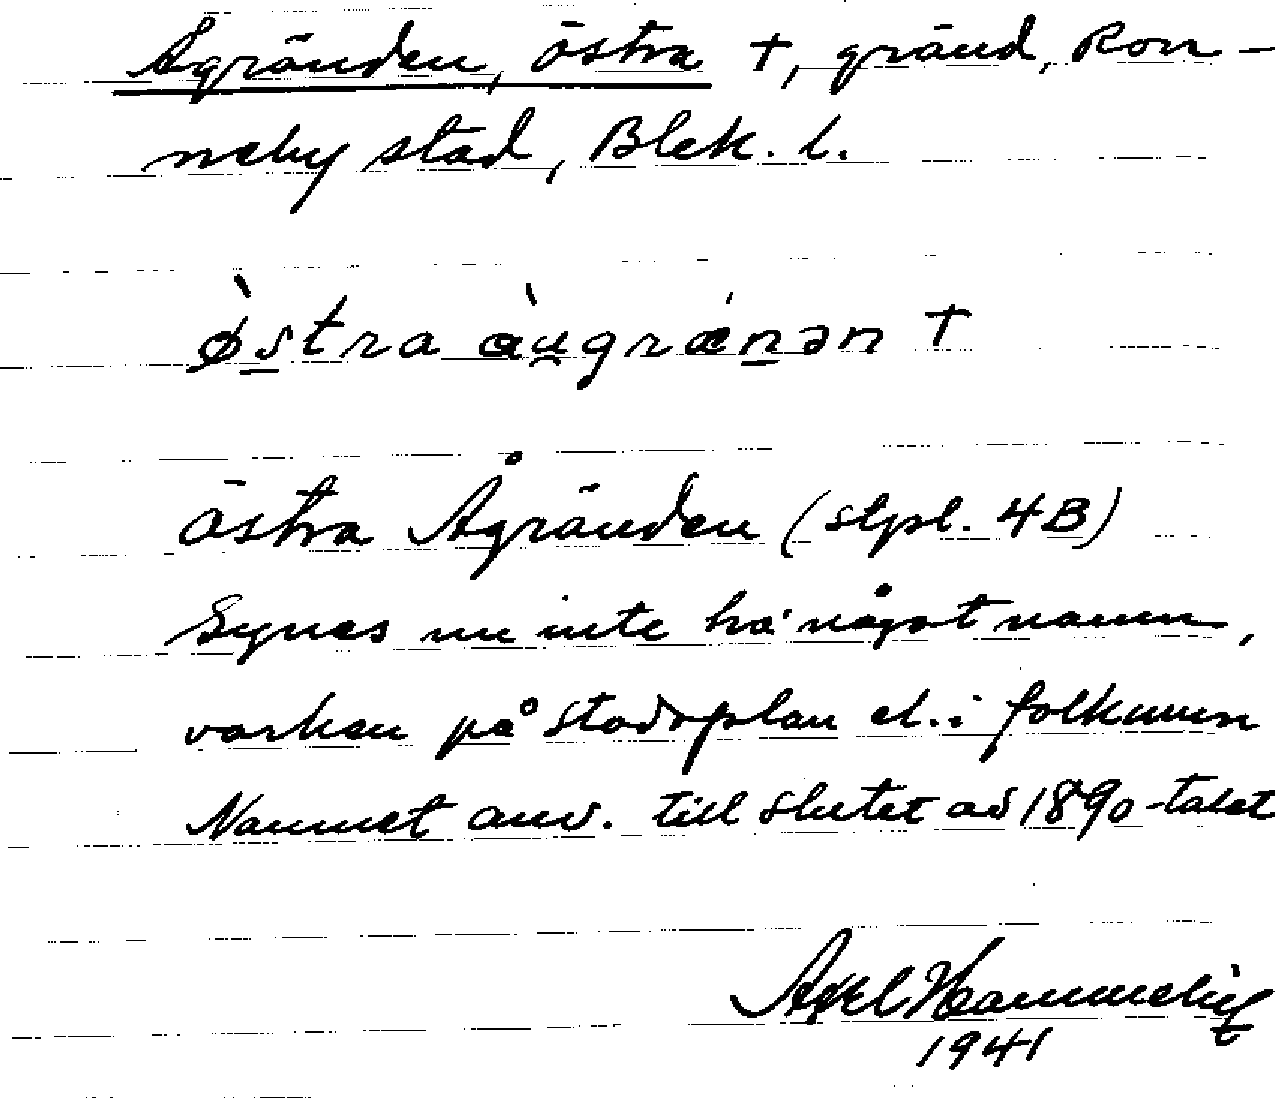 Ågränden, östra †, gränd, Ron-
neby stad, Blek. l.
ø̀stra àu̯grænən †
Östra Ågränden (stpl. 4B)
Synes nu inte ha något namn,
varken på stadsplan el. i folkmun
Namnet anv. till slutet av 1890-talet
Axel
1941